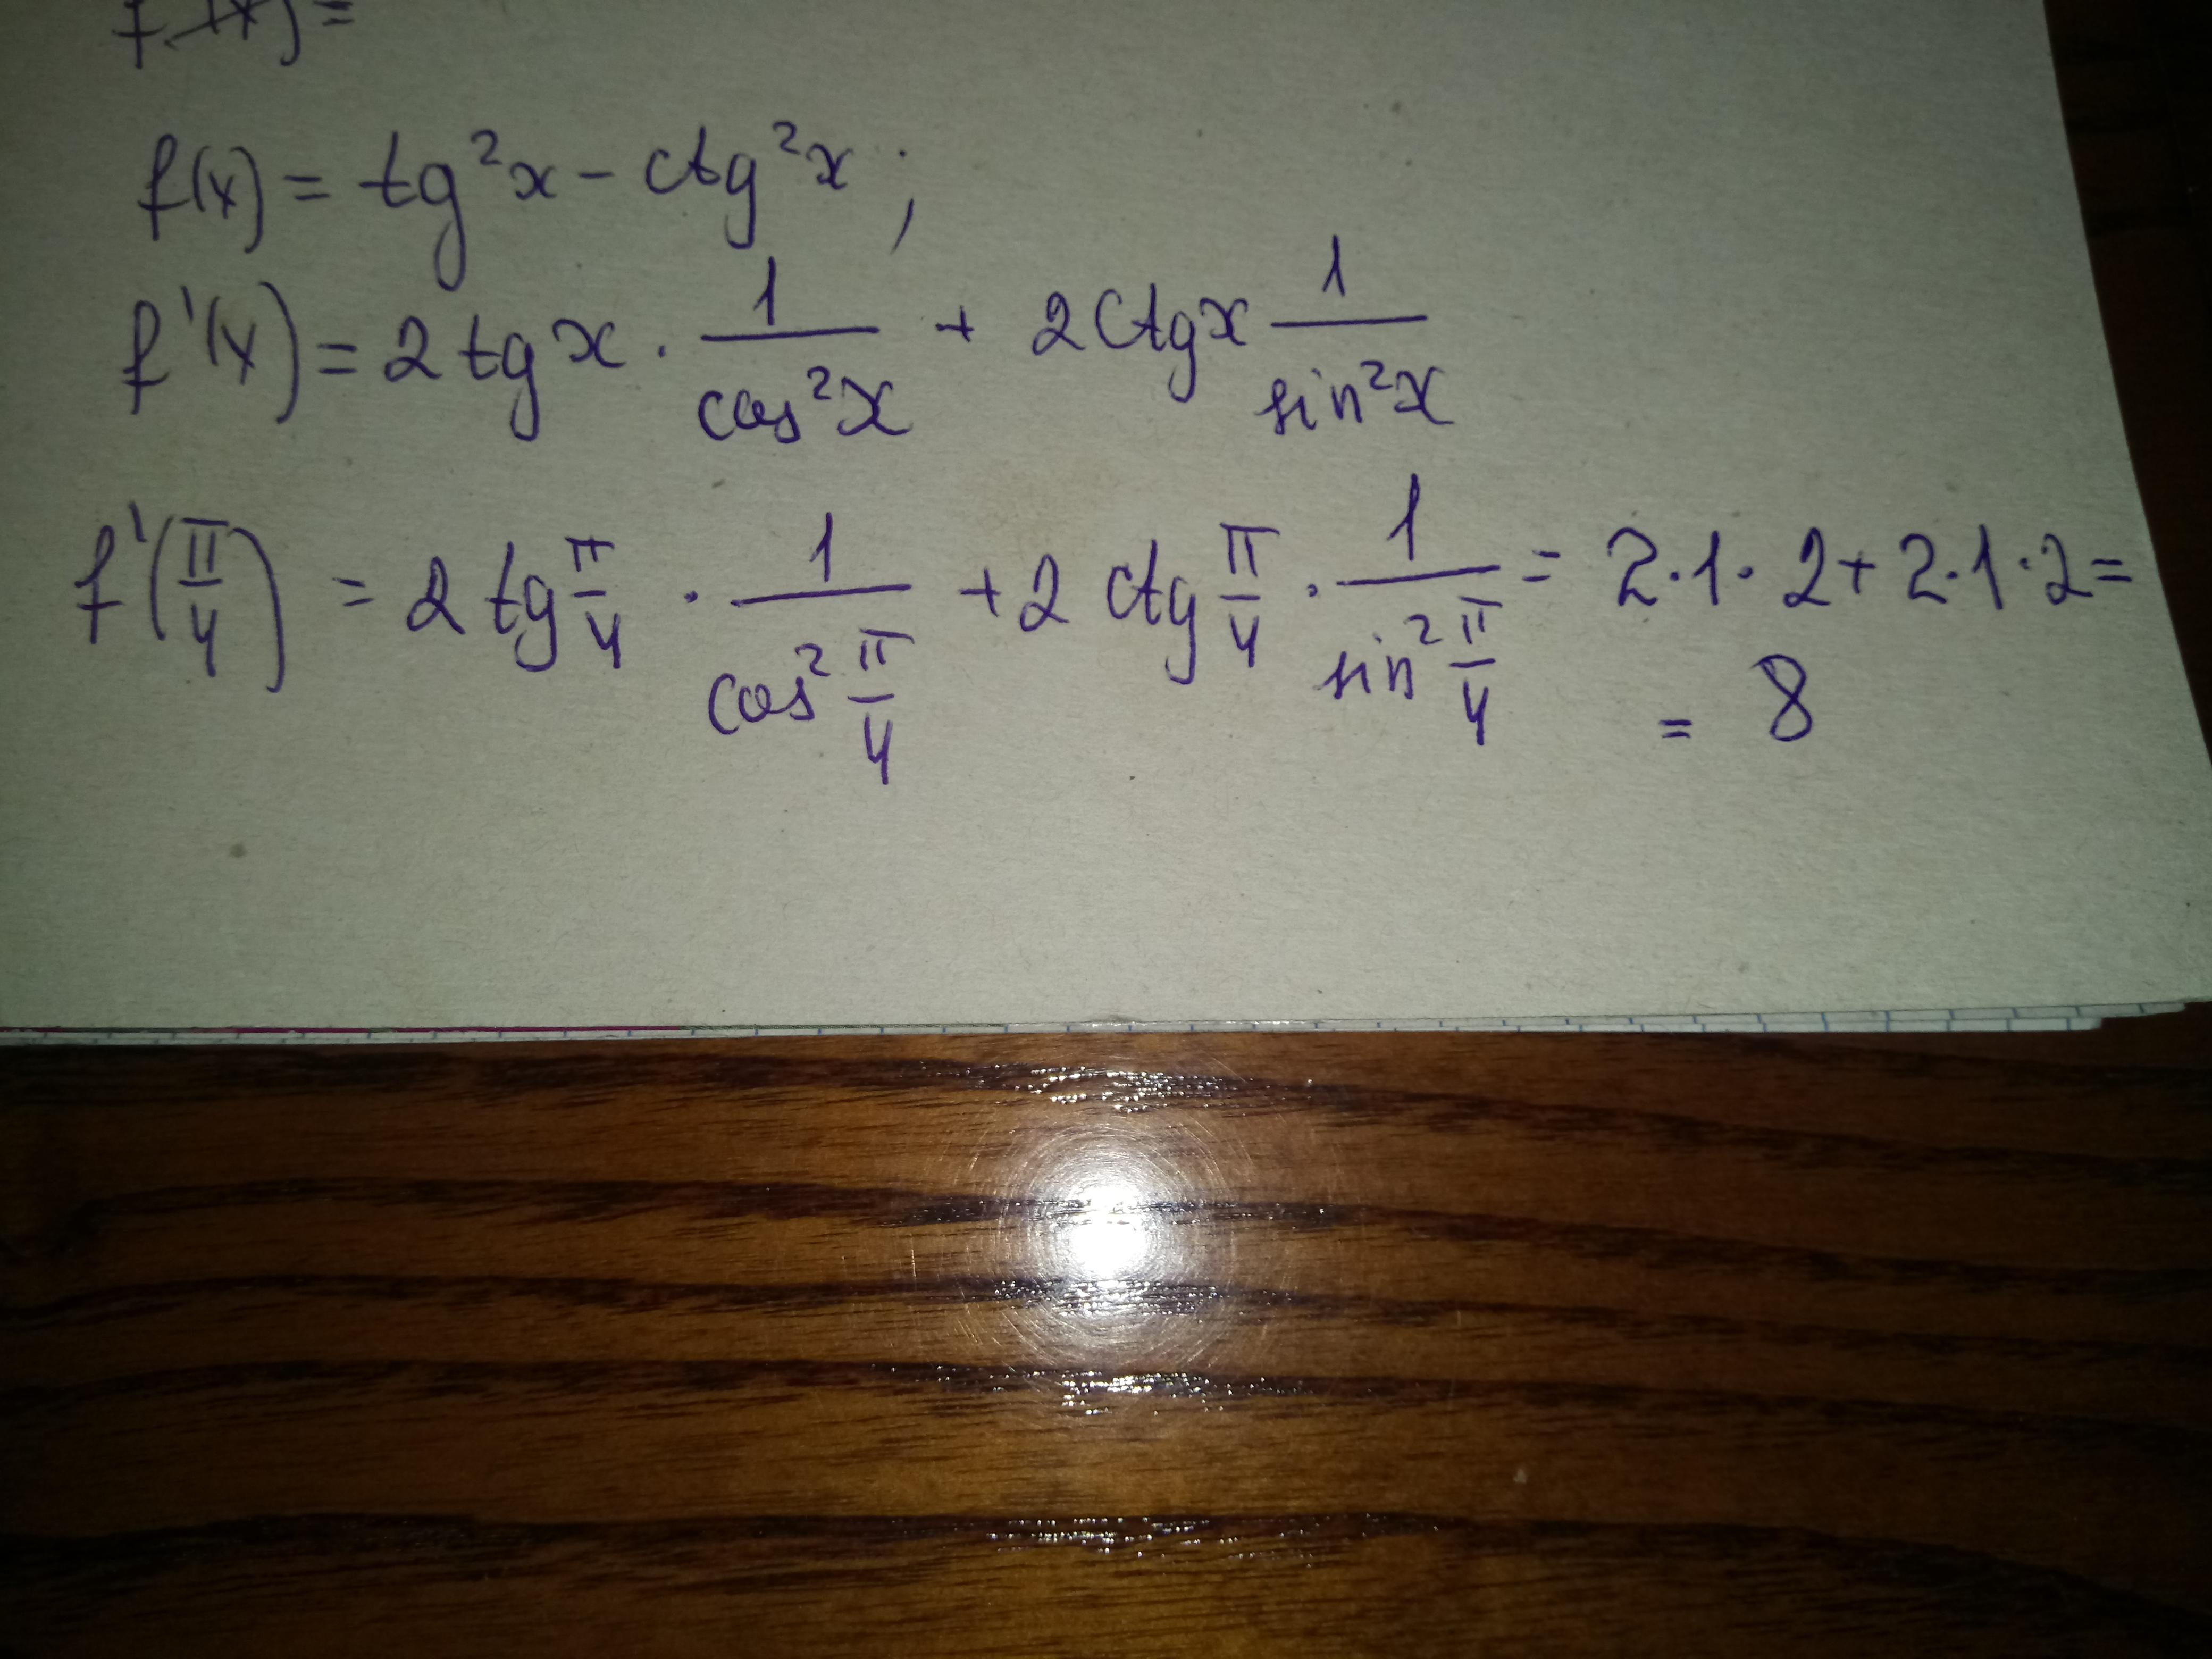 f(x) =
f(x) = tg²x - ctg²x ;
f'(x) = 2 tg x · 1/cos²x + 2 ctg x 1/sin²x
f'(π/4) = 2 tg π/4 · 1/cos² π/4 + 2 ctg π/4 · 1/sin² π/4 = 2·1·2+2·1·2=
= 8